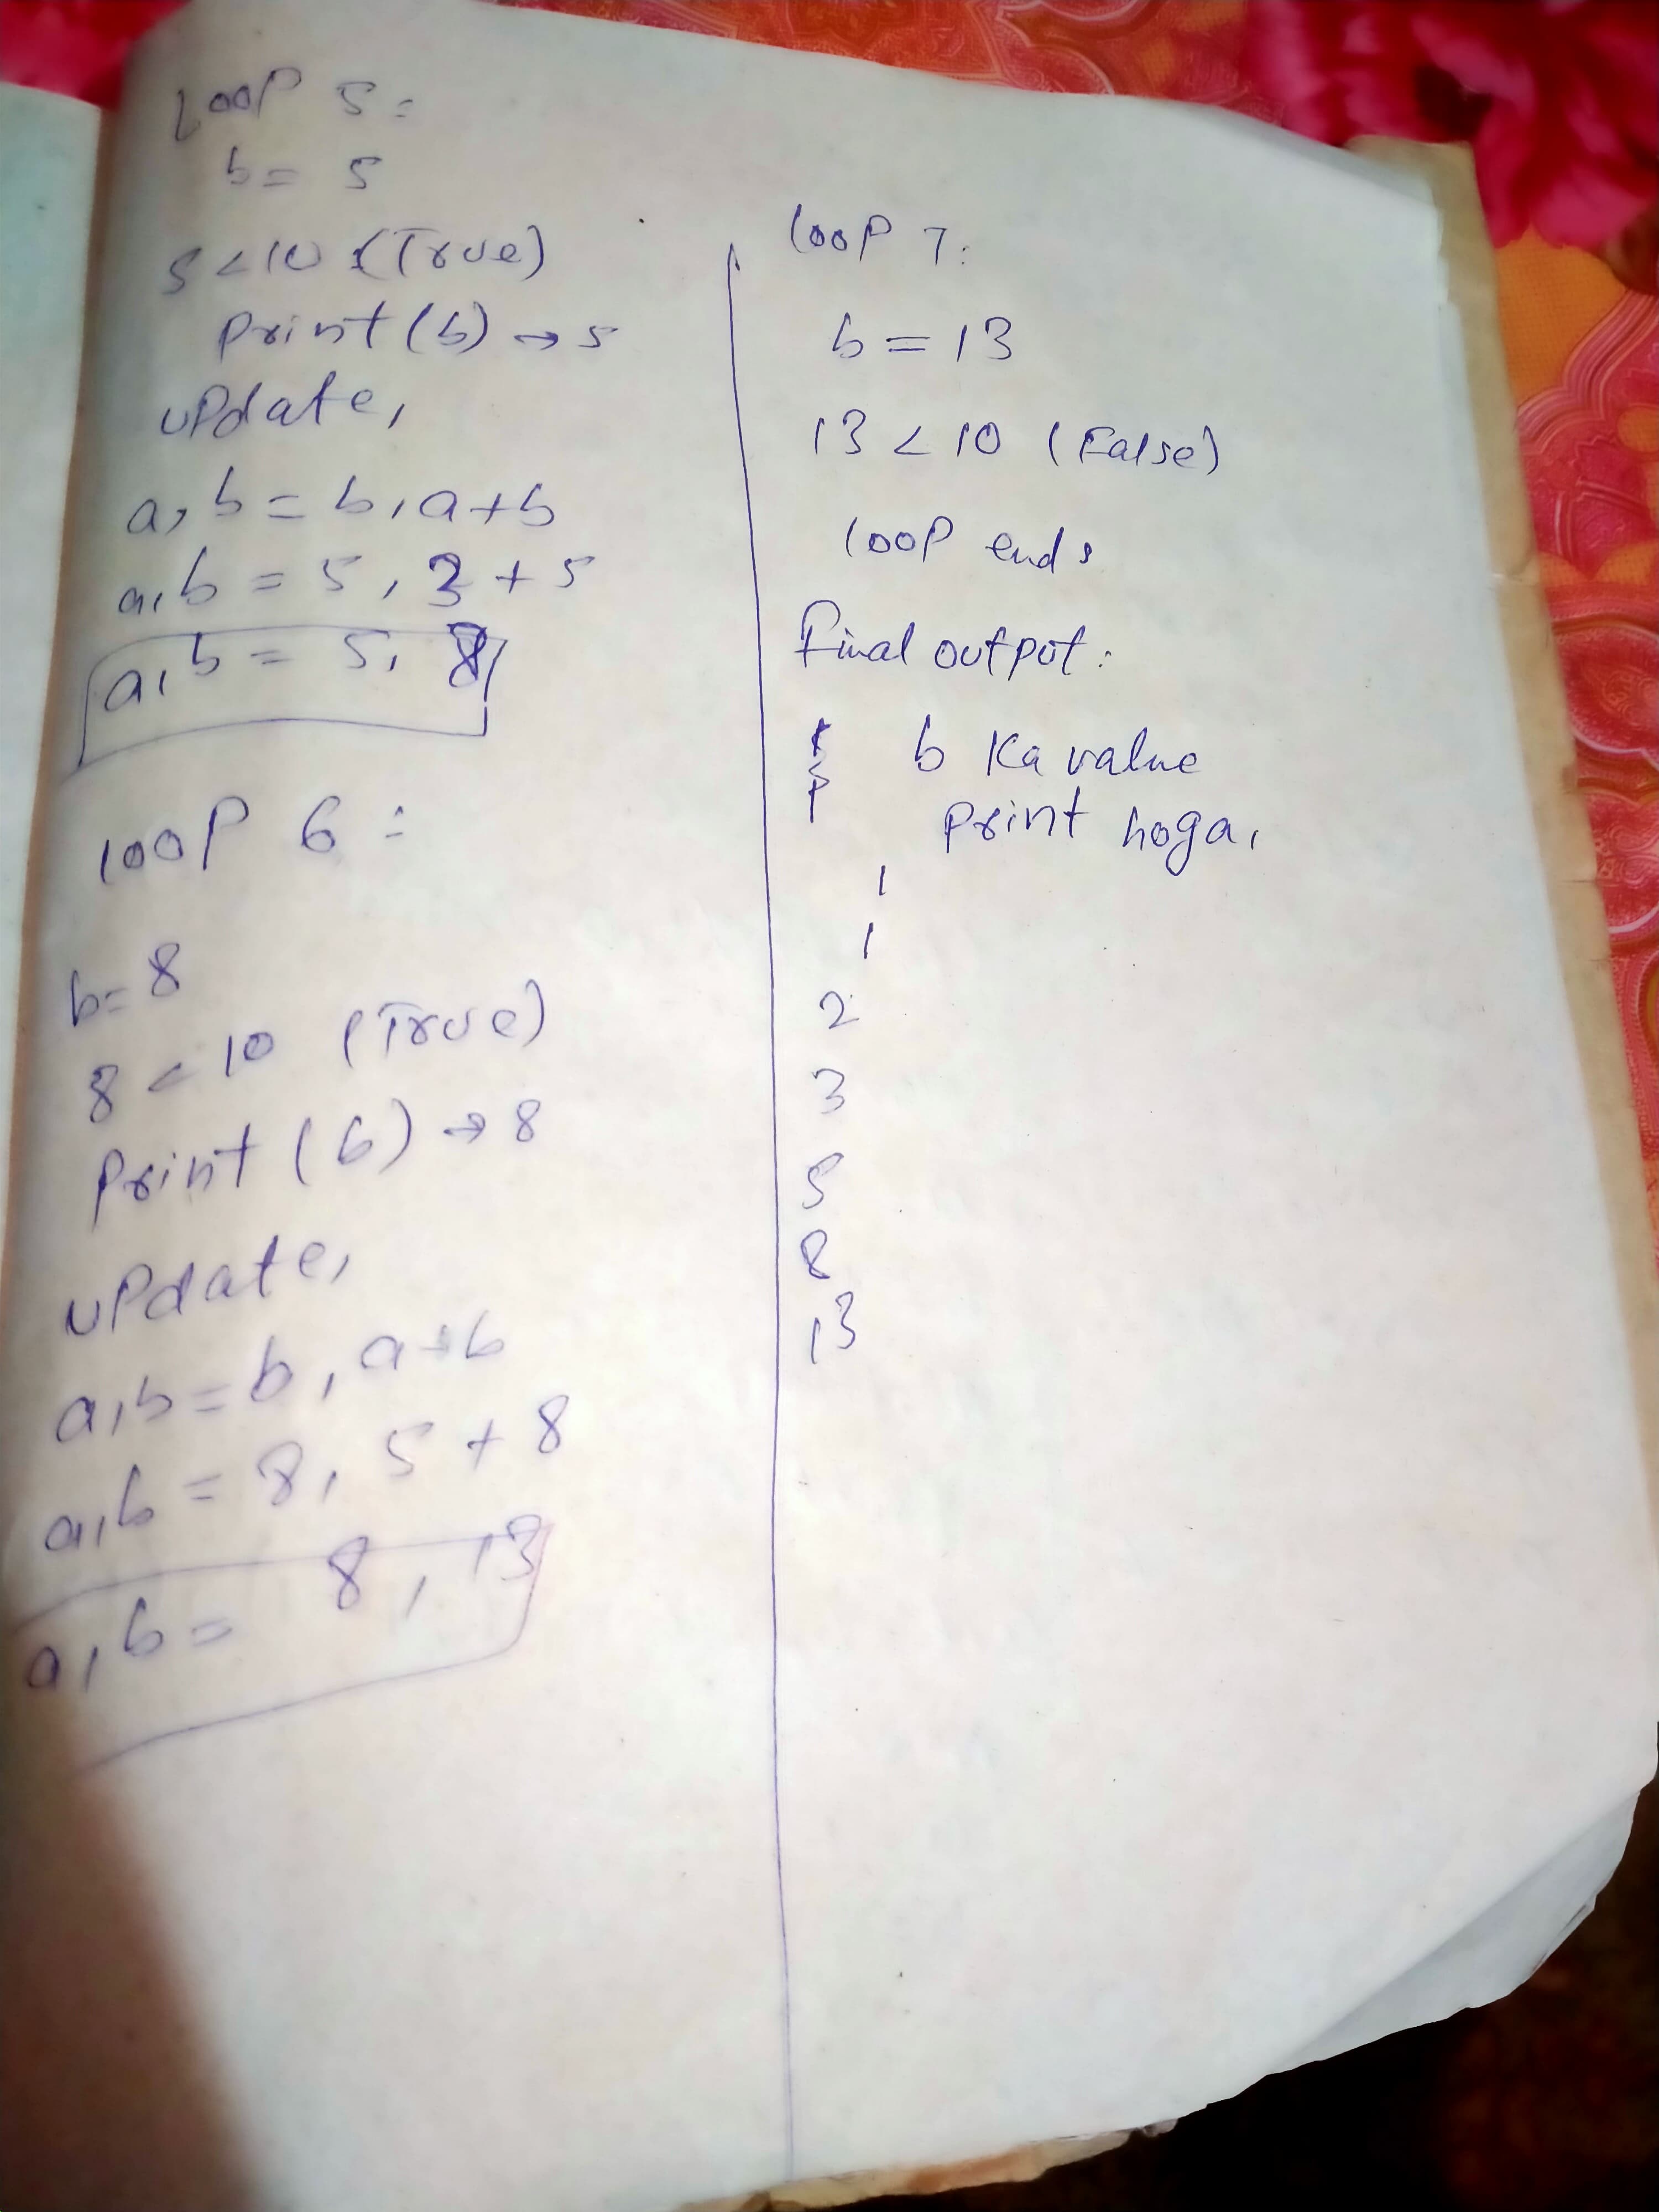 Loop 5:
b = 5
5 < 10 (True)
Print (b) → 5
update,
a, b = b, a+b
a, b = 5, 3 + 5
a, b = 5, 8
loop 6 :
b = 8
8 < 10 (True)
Print (b) → 8
update,
a, b = b, a+b
a, b = 8, 5 + 8
a, b = 8, 13
loop 7:
b = 13
13 < 10 (False)
loop ends
Final output:
b Ka value
Print hoga,
1
1
2
3
5
8
13